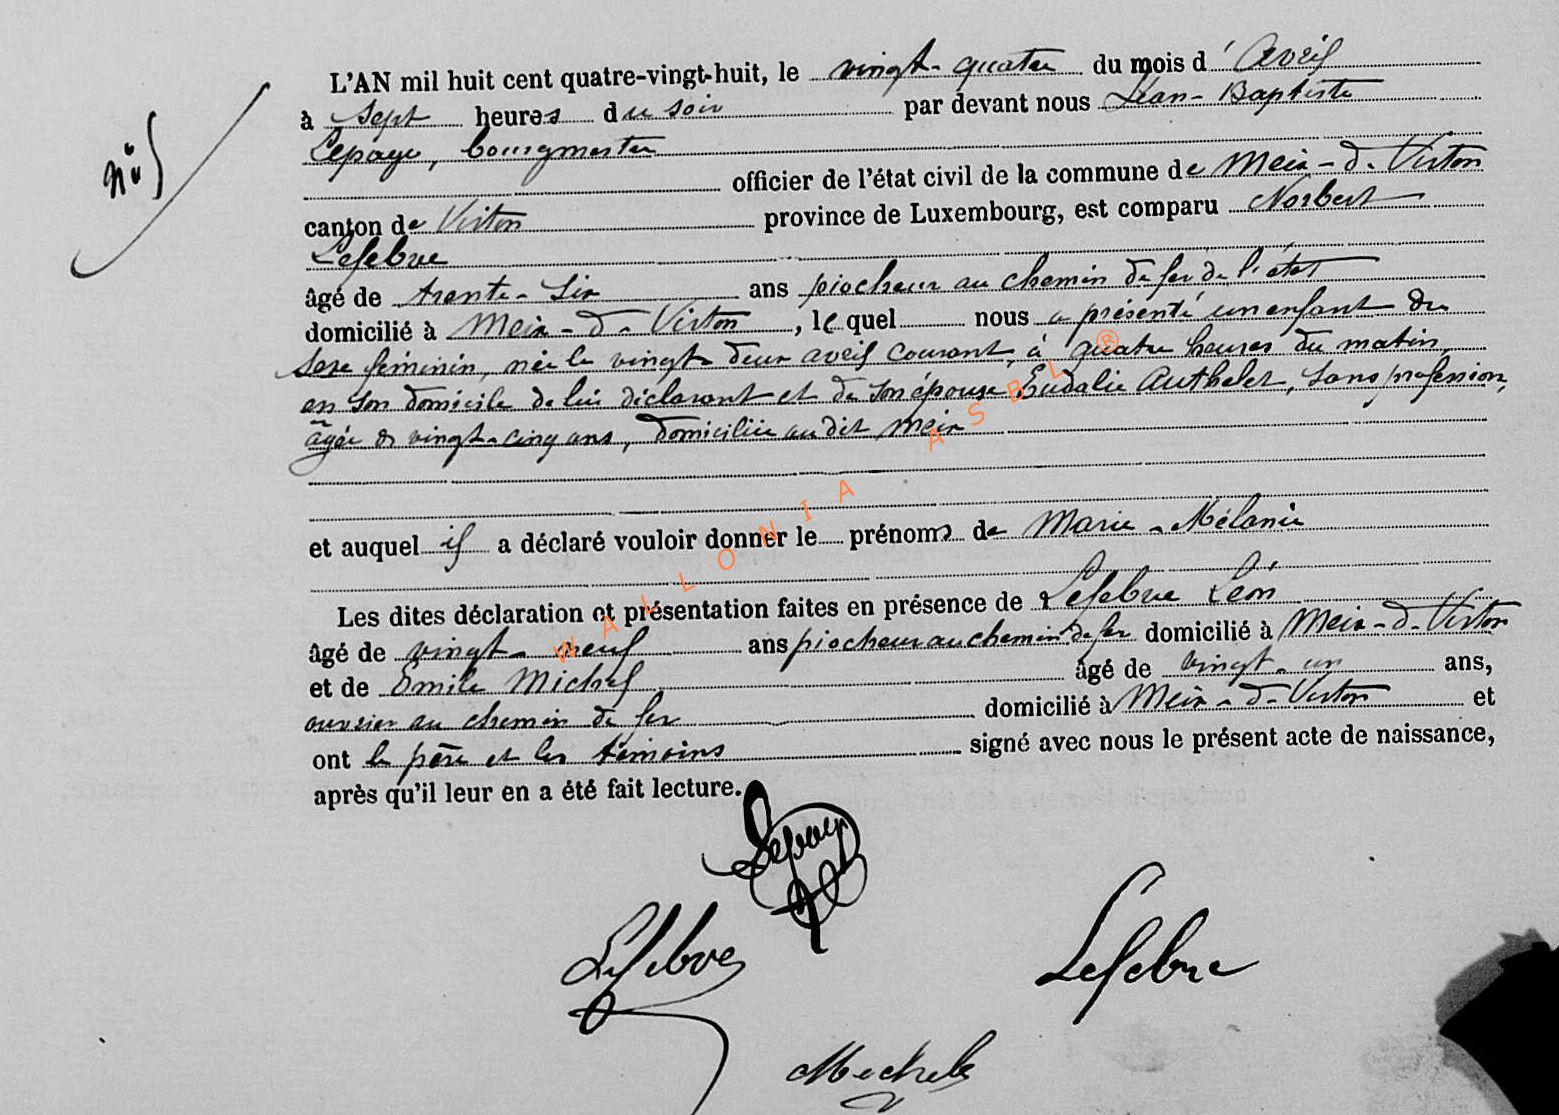 n° 5
L'AN mil huit cent quatre-vingt-huit, le vingt-quatre du mois d'Avril
à sept heures du soir par devant nous Jean-Baptiste
Lepage, bourgmestre
officier de l'état civil de la commune de Meix-d-Virton
canton de Virton province de Luxembourg, est comparu Norbert
Lefebvre
âgé de trente-six ans piocheur au chemin de fer de l'état
domicilié à Meix-d-Virton, le quel nous a présenté un enfant du
sexe féminin, née le vingt deux avril courant, à quatre heures du matin,
en son domicile de lui déclarant et de son épouse Eudalie Authelet, sans profession,
âgée de vingt-cinq ans, domiciliée au dit Meix
et auquel il a déclaré vouloir donner le prénoms de Marie-Mélanie
Les dites déclaration et présentation faites en présence de Lefebvre Léon
âgé de vingt-neuf ans piocheur au chemin de fer domicilié à Meix-d-Virton
et de Emile Michel âgé de vingt-un ans,
ouvrier au chemin de fer domicilié à Meix-d-Virton et
ont le père et les témoins signé avec nous le présent acte de naissance,
après qu'il leur en a été fait lecture.
Lepage
Lefebvre Lefebvre
Michel
WALLONIA ASBL ®